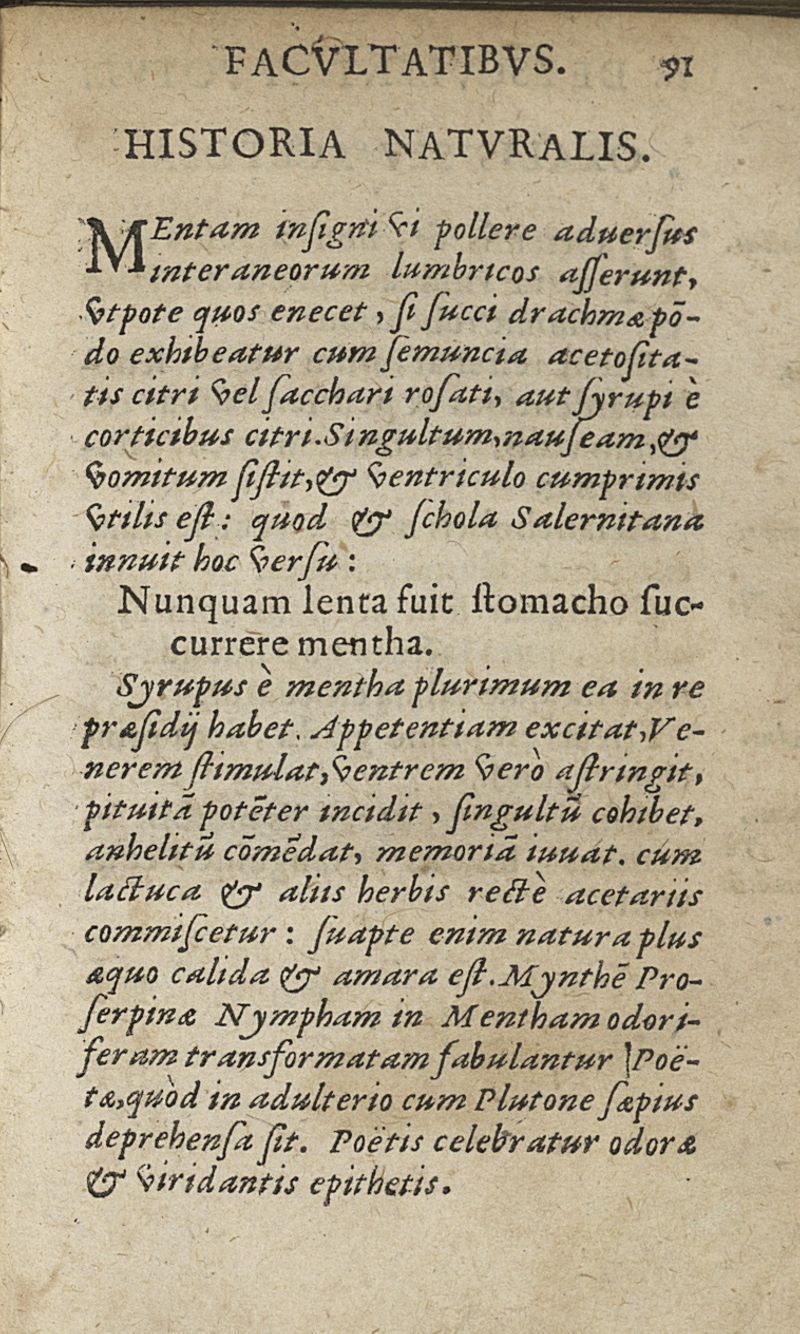 FACVLTATIBVS. 91
HISTORIA NATVRALIS.
MEntam inſigni vi pollere aduerſus
interaneorum lumbricos aſſerunt,
vtpote quos enecet, ſi ſucci drachmæ põ-
do exhibeatur cum ſemuncia acetoſita-
tis citri vel ſacchari roſati, aut ſyrupi è
corticibus citri. Singultum, nauſeam, &
vomitum ſiſtit, & ventriculo cumprimis
vtilis eſt: quod & ſchola Salernitana
innuit hoc verſu:
Nunquam lenta fuit ſtomacho ſuc-
currere mentha.
Syrupus è mentha plurimum ea in re
præſidij habet. Appetentiam excitat, Ve-
nerem ſtimulat, ventrem verò aſtringit,
pituitã potẽter incidit, ſingultũ cohibet,
anhelitũ cõmẽdat, memoriã iuuat. cum
lactuca & aliis herbis rectè acetariis
commiſcetur: ſuapte enim natura plus
æquo calida & amara eſt. Mynthẽ Pro-
ſerpinæ Nympham in Mentham odori-
feram transformatam fabulantur Poë-
tæ, quòd in adulterio cum Plutone ſæpius
deprehenſa ſit. Poëtis celebratur odoræ
& viridantis epithetis.